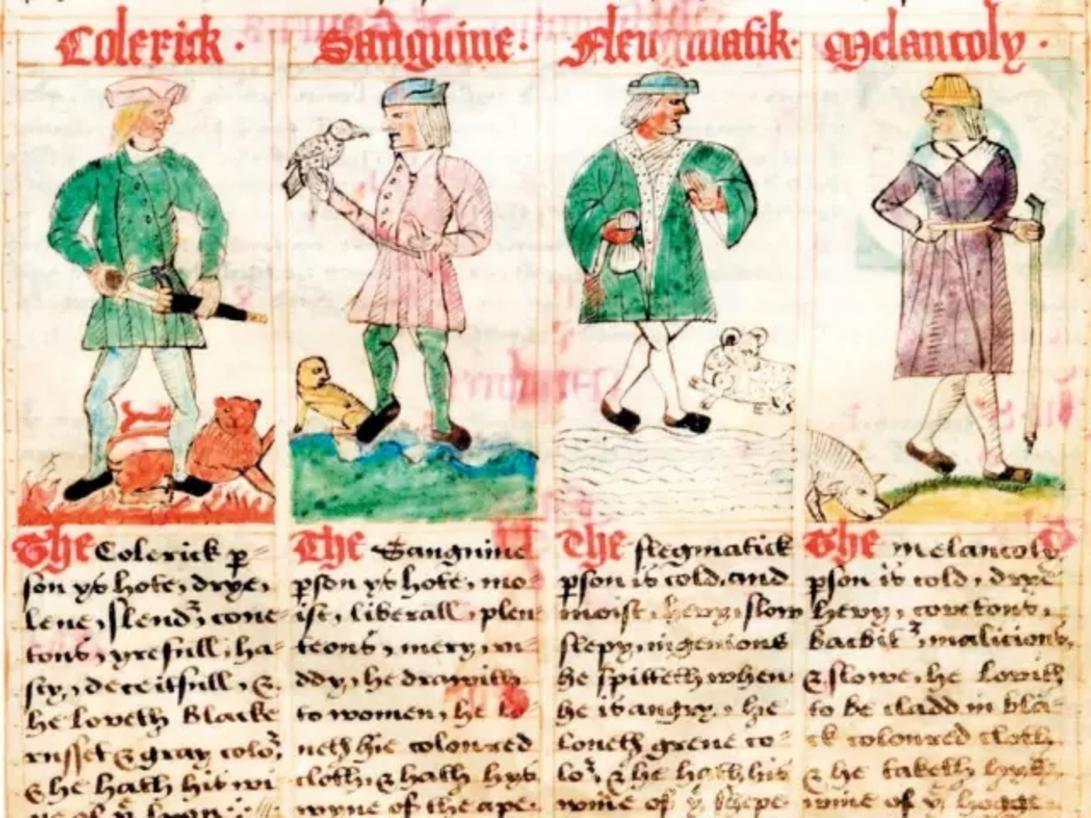 Colerick · Sanguine · Fleugmatik · Melancoly ·
The Colerick p̱=
son ys hote, drye,
lene, slend', coue=
tous, yrefull, ha=
sty, deceitfull, &
he loveth blacke
russet & gray colo',
& he hath his wi
ne of yͤ lyon
The Sanguine
p̱son ys hote, mo=
ist, liberall, plen=
teous, mery, ru=
ddy, he drawith
to women, he lo=
ueth hie coloured
cloth, & hath hys
wyne of the ape ·
The flegmatick
p̱son is cold, and
moist, hevy, slow
slepy, ingenious
he spitteth when
he is angry, he
loueth grene co=
lo', & he hath his
wine of yͤ shepe ·
The melancoly
p̱son is cold, drye
hevy, covetous,
malicious,
& slowe, he lovith
to be cladd in bla=
ck coloured cloth
& he taketh hys
wine of yͤ hogge